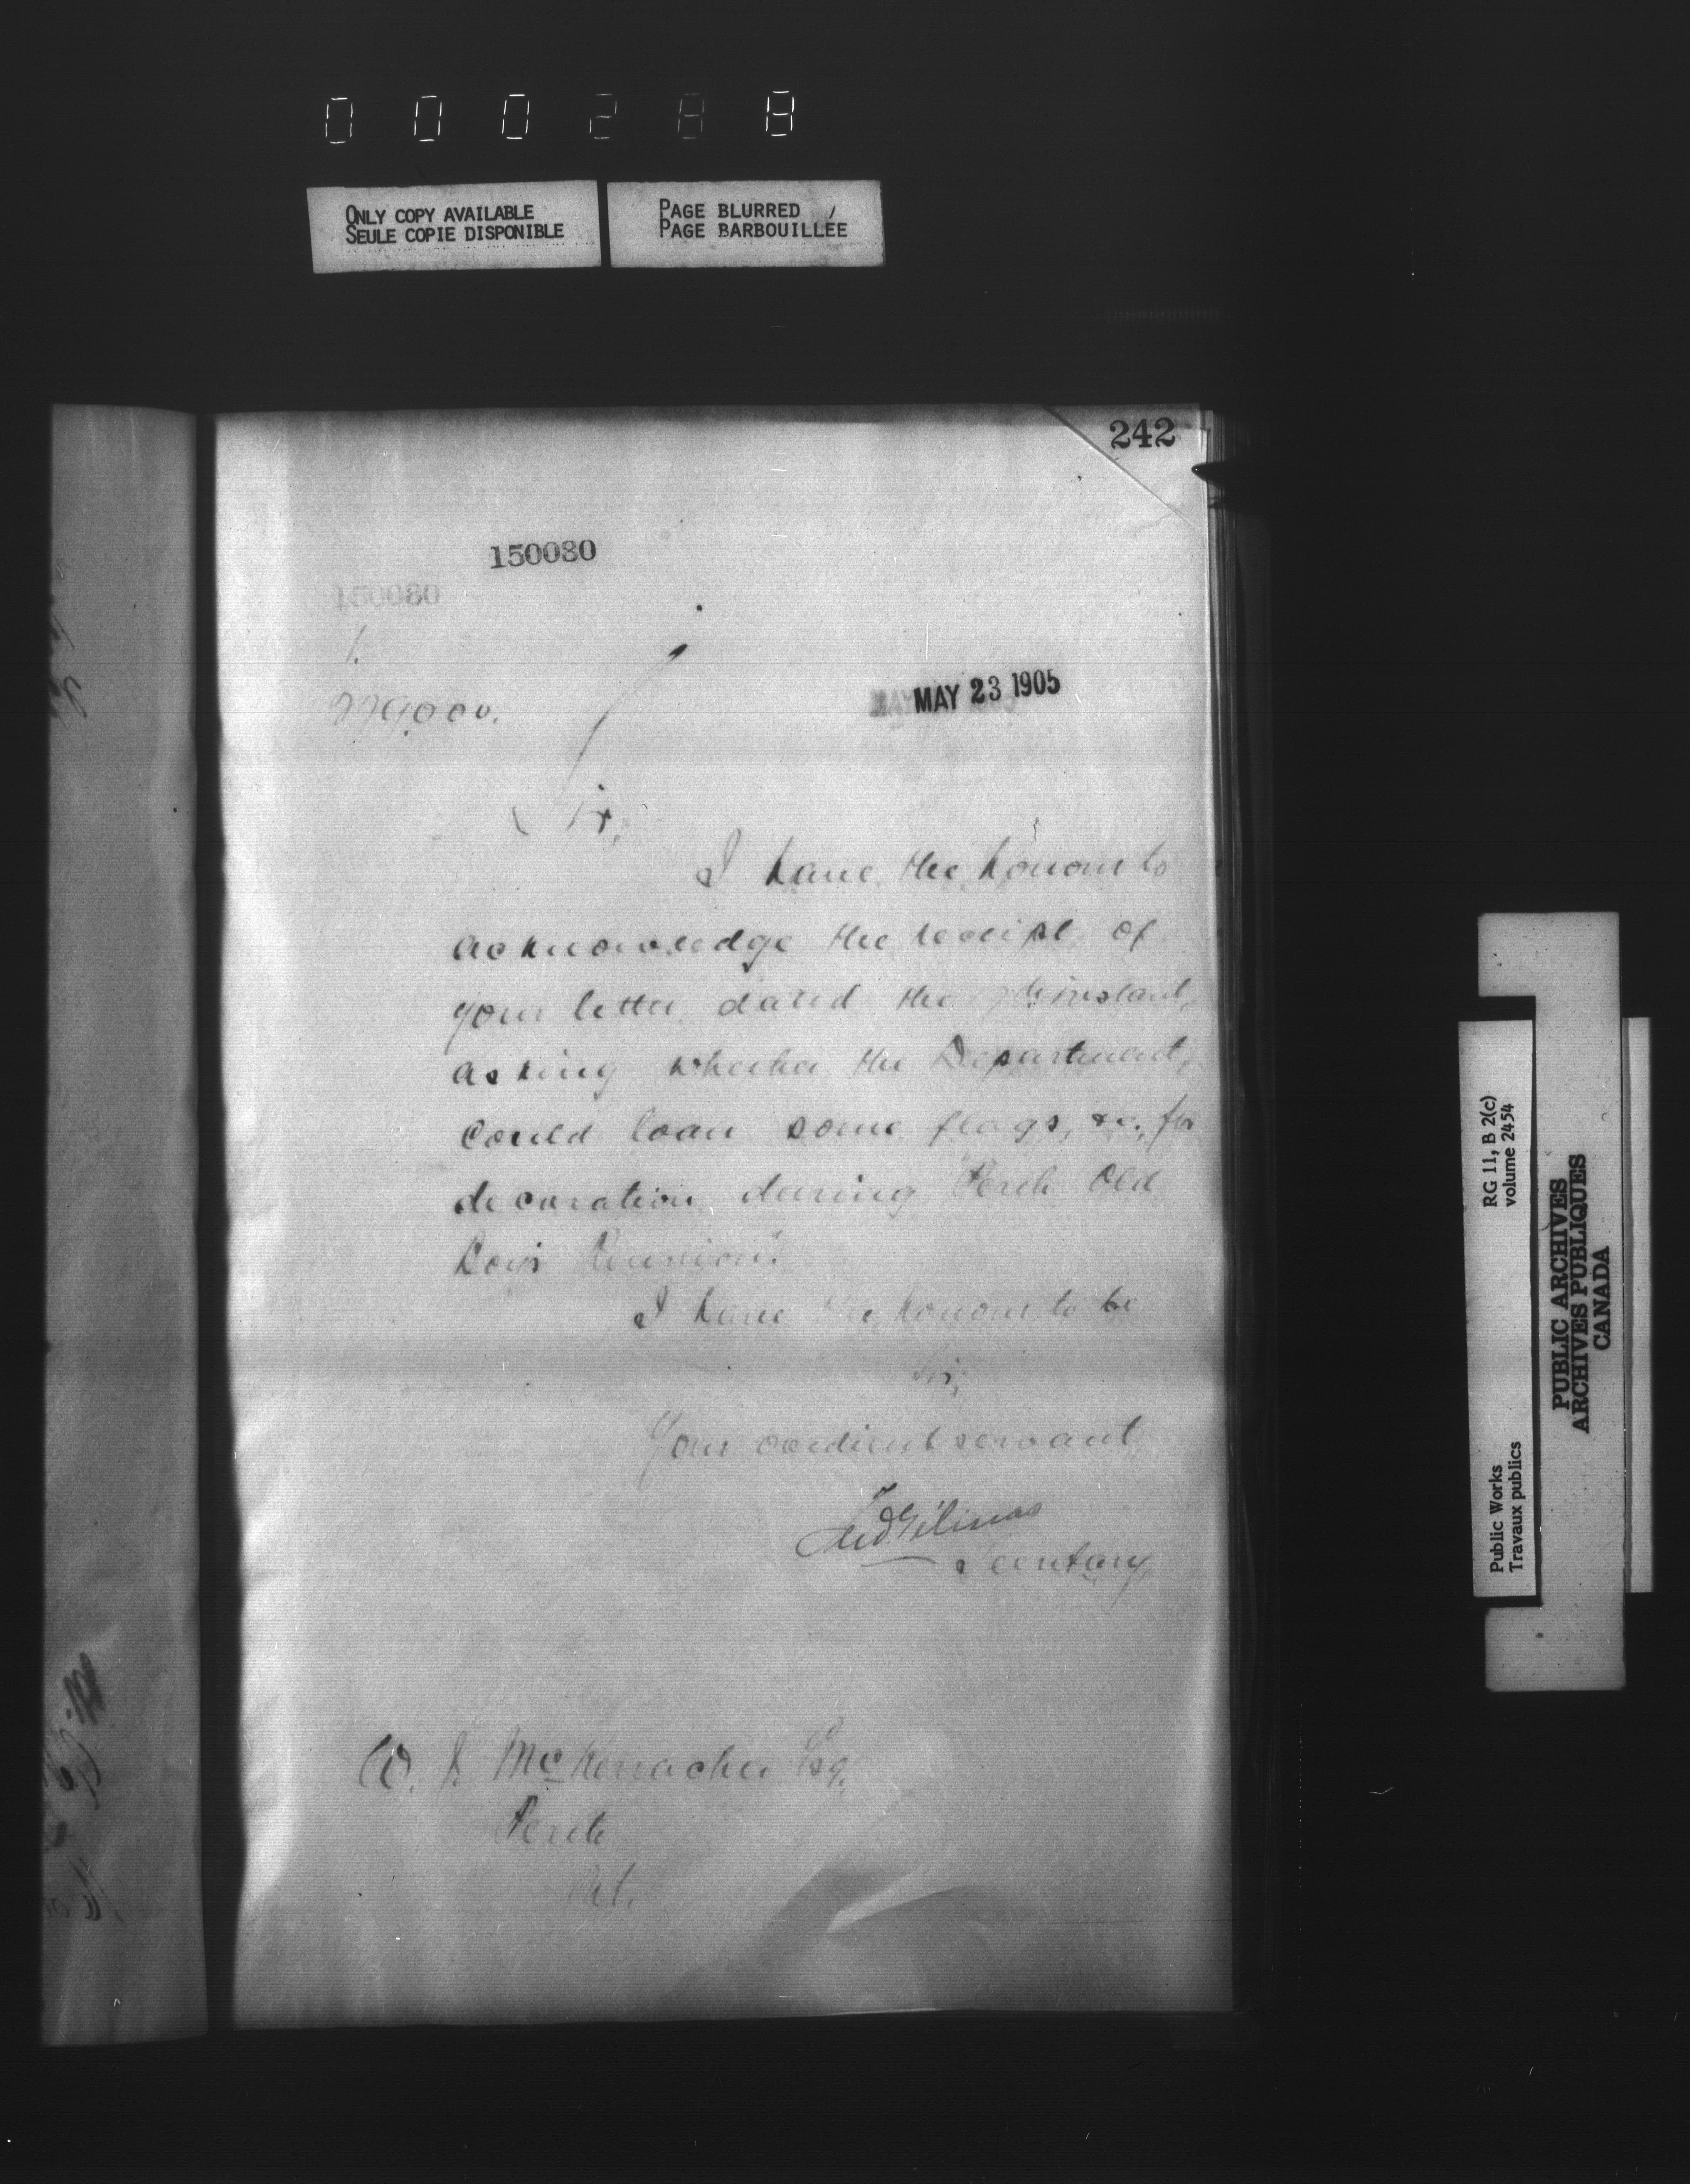 000288
ONLY COPY AVAILABLE
SEULE COPIE DISPONIBLE
PAGE BLURRED
PAGE BARBOUILLÉE
242
150080
150080
1.
MAY 23 1905
Sir,
I have the honour to
acknowledge the receipt of
your letter dated the instant,
asking whether the Department
could loan some flags, &c, for
decoration during "Perth Old
Boys Reunion".
I have the honour to be
Sir,
Your obedient servant
Fred Gélinas
Secretary,
W. J. McKerracher Esq.
Perth
Ont.
RG 11, B 2(c)
volume 2454
Public Works
Travaux publics
PUBLIC ARCHIVES
ARCHIVES PUBLIQUES
CANADA